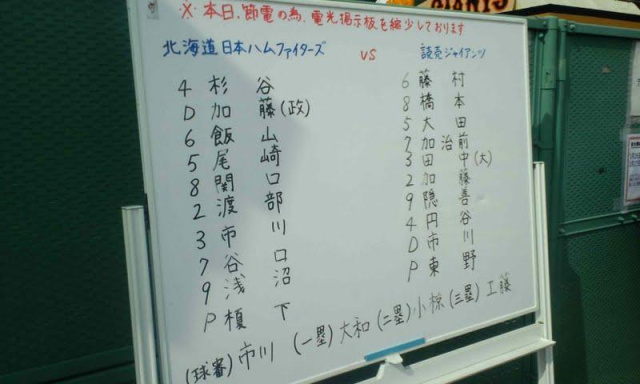 GIANTS
※本日、節電の為、電光掲示板を縮少しております
北海道日本ハムファイターズ vs 読売ジャイアンツ
4 杉谷 6 藤村
D 加藤(政) 8 橋本
6 飯山 5 大田
5 尾崎 7 加治前
8 関口 3 田中(大)
2 渡部 2 加藤
3 市川 9 隠善
7 谷口 4 円谷
9 浅沼 D 市川
P 榎下 P 東野
(球審)市川 (一塁)大和 (二塁)小椋 (三塁)工藤